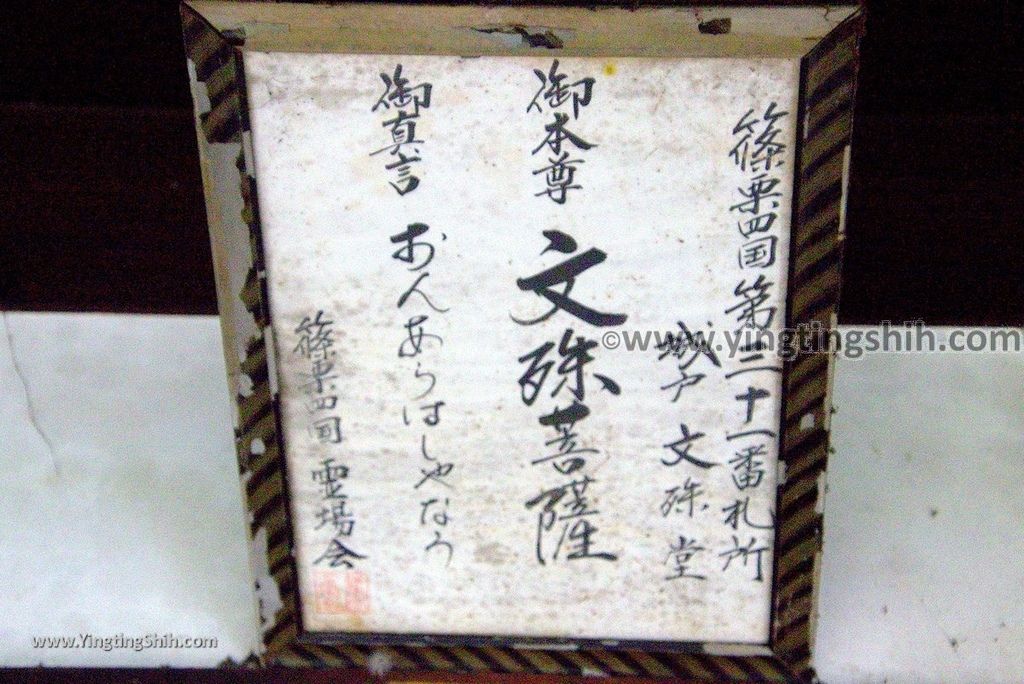 篠栗四国第三十一番札所
城戸 文殊堂
御本尊 文殊菩薩
御真言 おんあらはしゃなう
篠栗四国 霊場会
©www.yingtingshih.com
www.YingtingShih.com